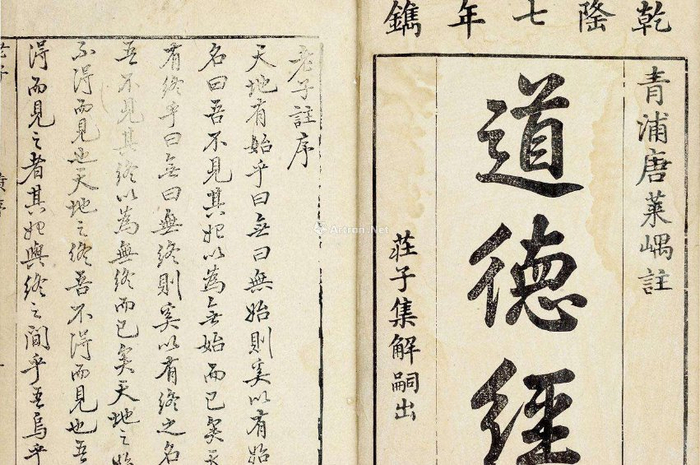 乾隆七年鐫
青浦唐萊嵎註
道德經
荘子集解嗣出
老子註序
天地有始乎曰無曰無始則奚以有始
名曰吾不見其始以為無始而已矣天
有終乎曰無曰無終則奚以有終之名
吾不見其終以為無終而已矣天地之始
不得而見也天地之終吾不得而見也吾
得而見之者其始與終之間乎吾烏乎
Artron.Net